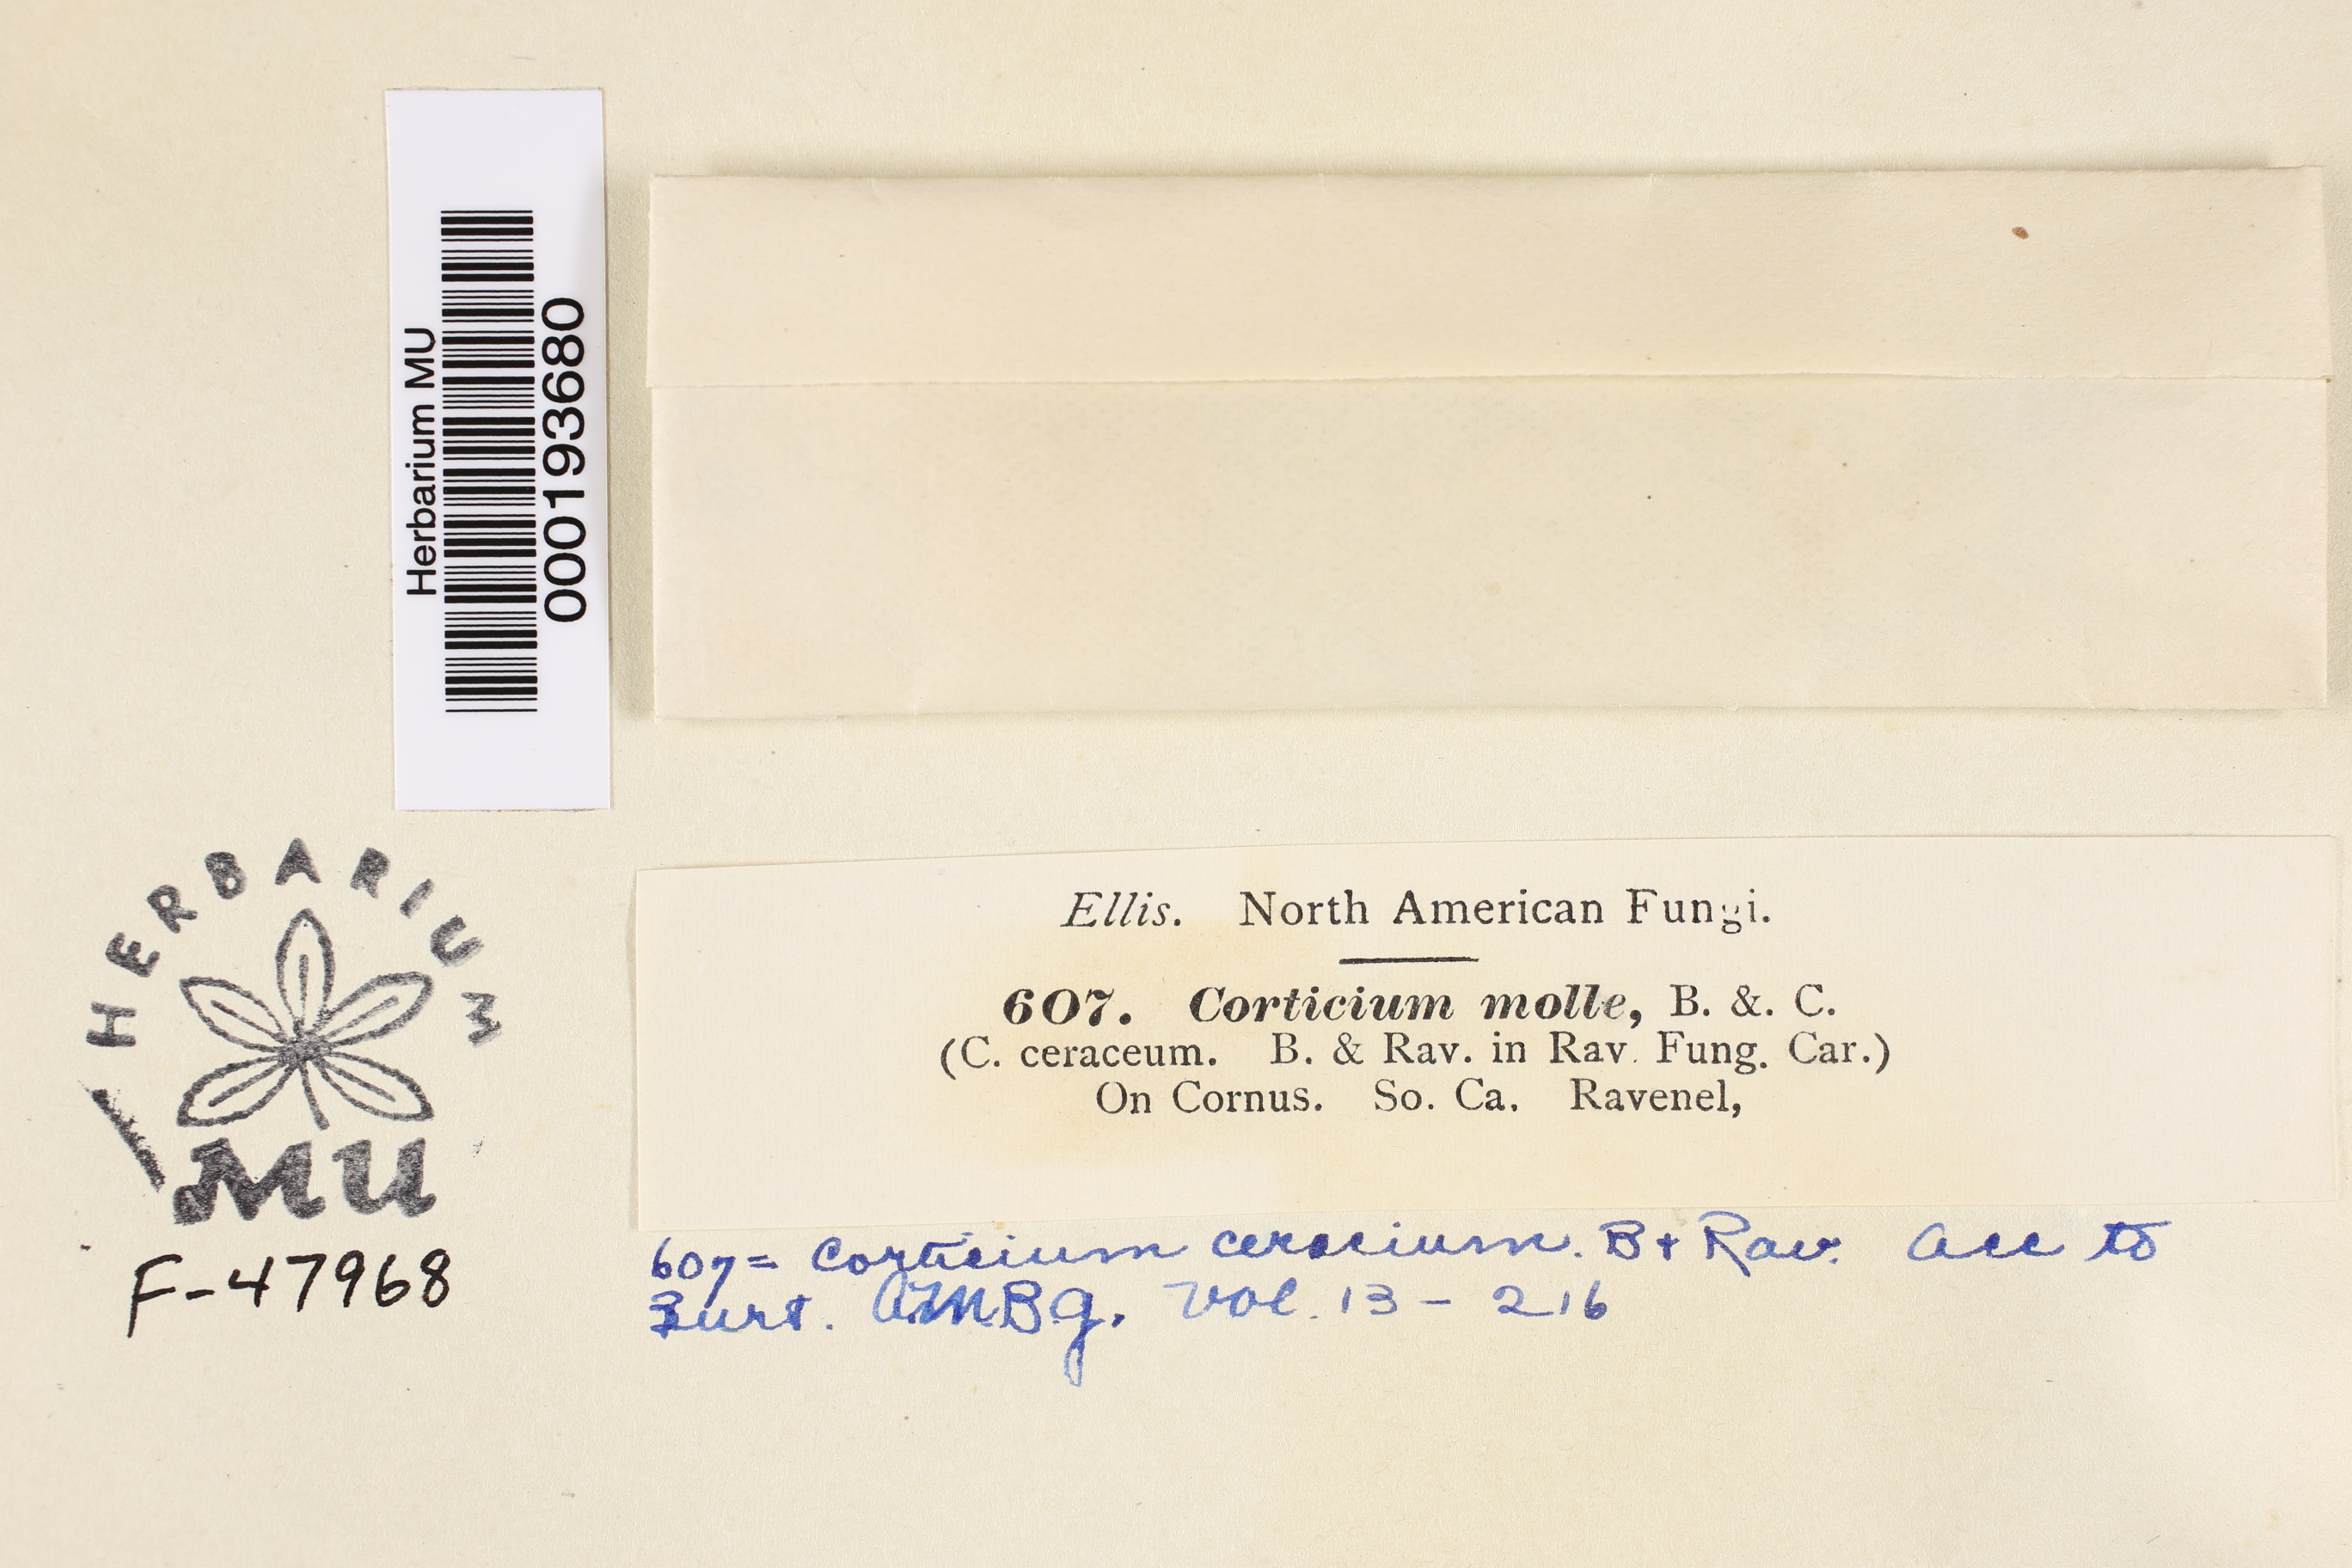 Herbarium MU
000193680
HERBARIUM
MU
F-47968
Ellis. North American Fungi.
607. Corticium molle, B. &. C.
(C. ceraceum. B. & Rav. in Rav. Fung. Car.)
On Cornus. So. Ca. Ravenel,
607 = Corticium ceracium. B + Rav. Acc to
Burt. A.M.B.g. Vol. 13 - 216